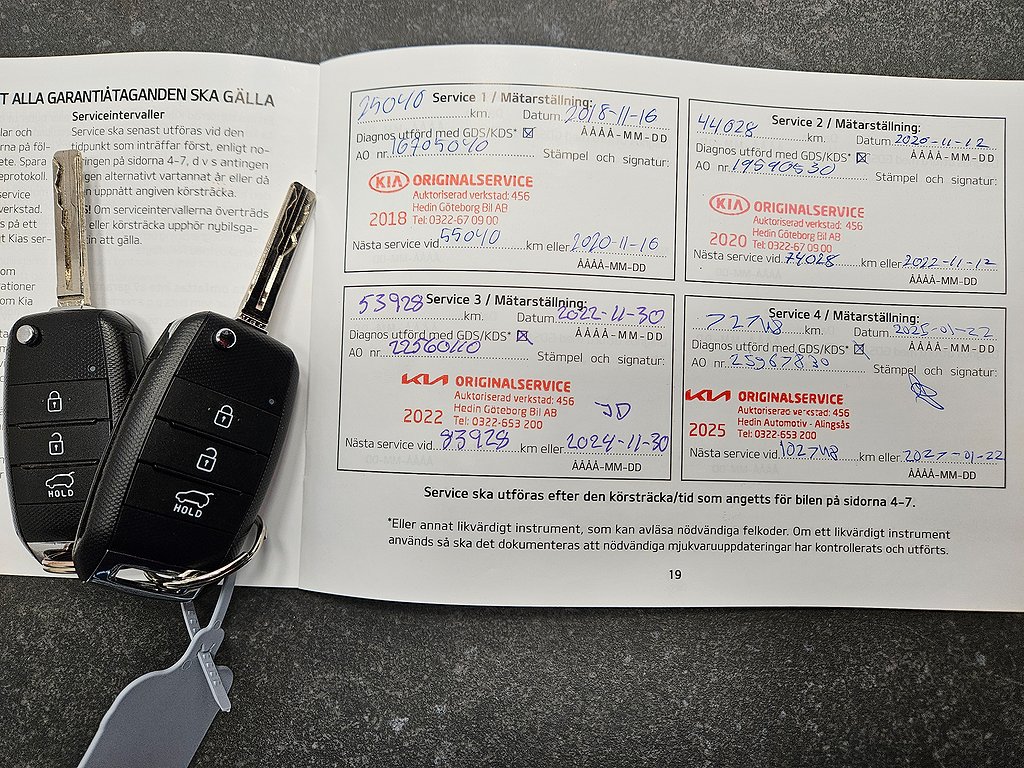 T ALLA GARANTIÅTAGANDEN SKA GÄLLA
Serviceintervaller
lar och
rna på föl-
ete. Spara
eprotokoll.
service
verkstad.
s på ett
t Kias ser-
om
rationer
om Kia
Service ska senast utföras vid den
tidpunkt som inträffar först, enligt no-
ringen på sidorna 4–7, d v s antingen
gen alternativt vartannat år eller då
uppnått angiven körsträcka.
S! Om serviceintervallerna överträds
eller körsträcka upphör nybilsga-
in att gälla.
HOLD
HOLD
25040 Service 1 / Mätarställning:
km. Datum. 2018-11-16
Diagnos utförd med GDS/KDS* ☒ ÅÅÅÅ-MM-DD
AO nr. 16705040
Stämpel och signatur:
KIA ORIGINALSERVICE
Auktoriserad verkstad: 456
Hedin Göteborg Bil AB
2018 Tel: 0322-67 09 00
Nästa service vid 55040 km eller 2020-11-16
ÅÅÅÅ-MM-DD
44028 Service 2 / Mätarställning:
km. Datum. 2020-11-12
Diagnos utförd med GDS/KDS* ☒ ÅÅÅÅ-MM-DD
AO nr. 19540530 Stämpel och signatur:
KIA ORIGINALSERVICE
Auktoriserad verkstad: 456
Hedin Göteborg Bil AB
2020 Tel: 0322-67 09 00
Nästa service vid 74028 km eller 2022-11-12
ÅÅÅÅ-MM-DD
53928 Service 3 / Mätarställning:
km. Datum. 2022-11-30
Diagnos utförd med GDS/KDS* ☒ ÅÅÅÅ-MM-DD
AO nr. Stämpel och signatur:
KIA ORIGINALSERVICE
Auktoriserad verkstad: 456
Hedin Göteborg Bil AB JD
2022 Tel: 0322-653 200
Nästa service vid 83928 km eller 2024-11-30
ÅÅÅÅ-MM-DD
Service 4 / Mätarställning:
km. Datum. 2025-01-22
Diagnos utförd med GDS/KDS* ☒ ÅÅÅÅ-MM-DD
AO nr. 25967830 Stämpel och signatur:
KIA ORIGINALSERVICE
Auktoriserad verkstad: 456
Hedin Automotiv - Alingsås
2025 Tel: 0322-653 200
Nästa service vid km eller 2027-01-22
ÅÅÅÅ-MM-DD
Service ska utföras efter den körsträcka/tid som angetts för bilen på sidorna 4–7.
*Eller annat likvärdigt instrument, som kan avläsa nödvändiga felkoder. Om ett likvärdigt instrument
används så ska det dokumenteras att nödvändiga mjukvaruuppdateringar har kontrollerats och utförts.
19